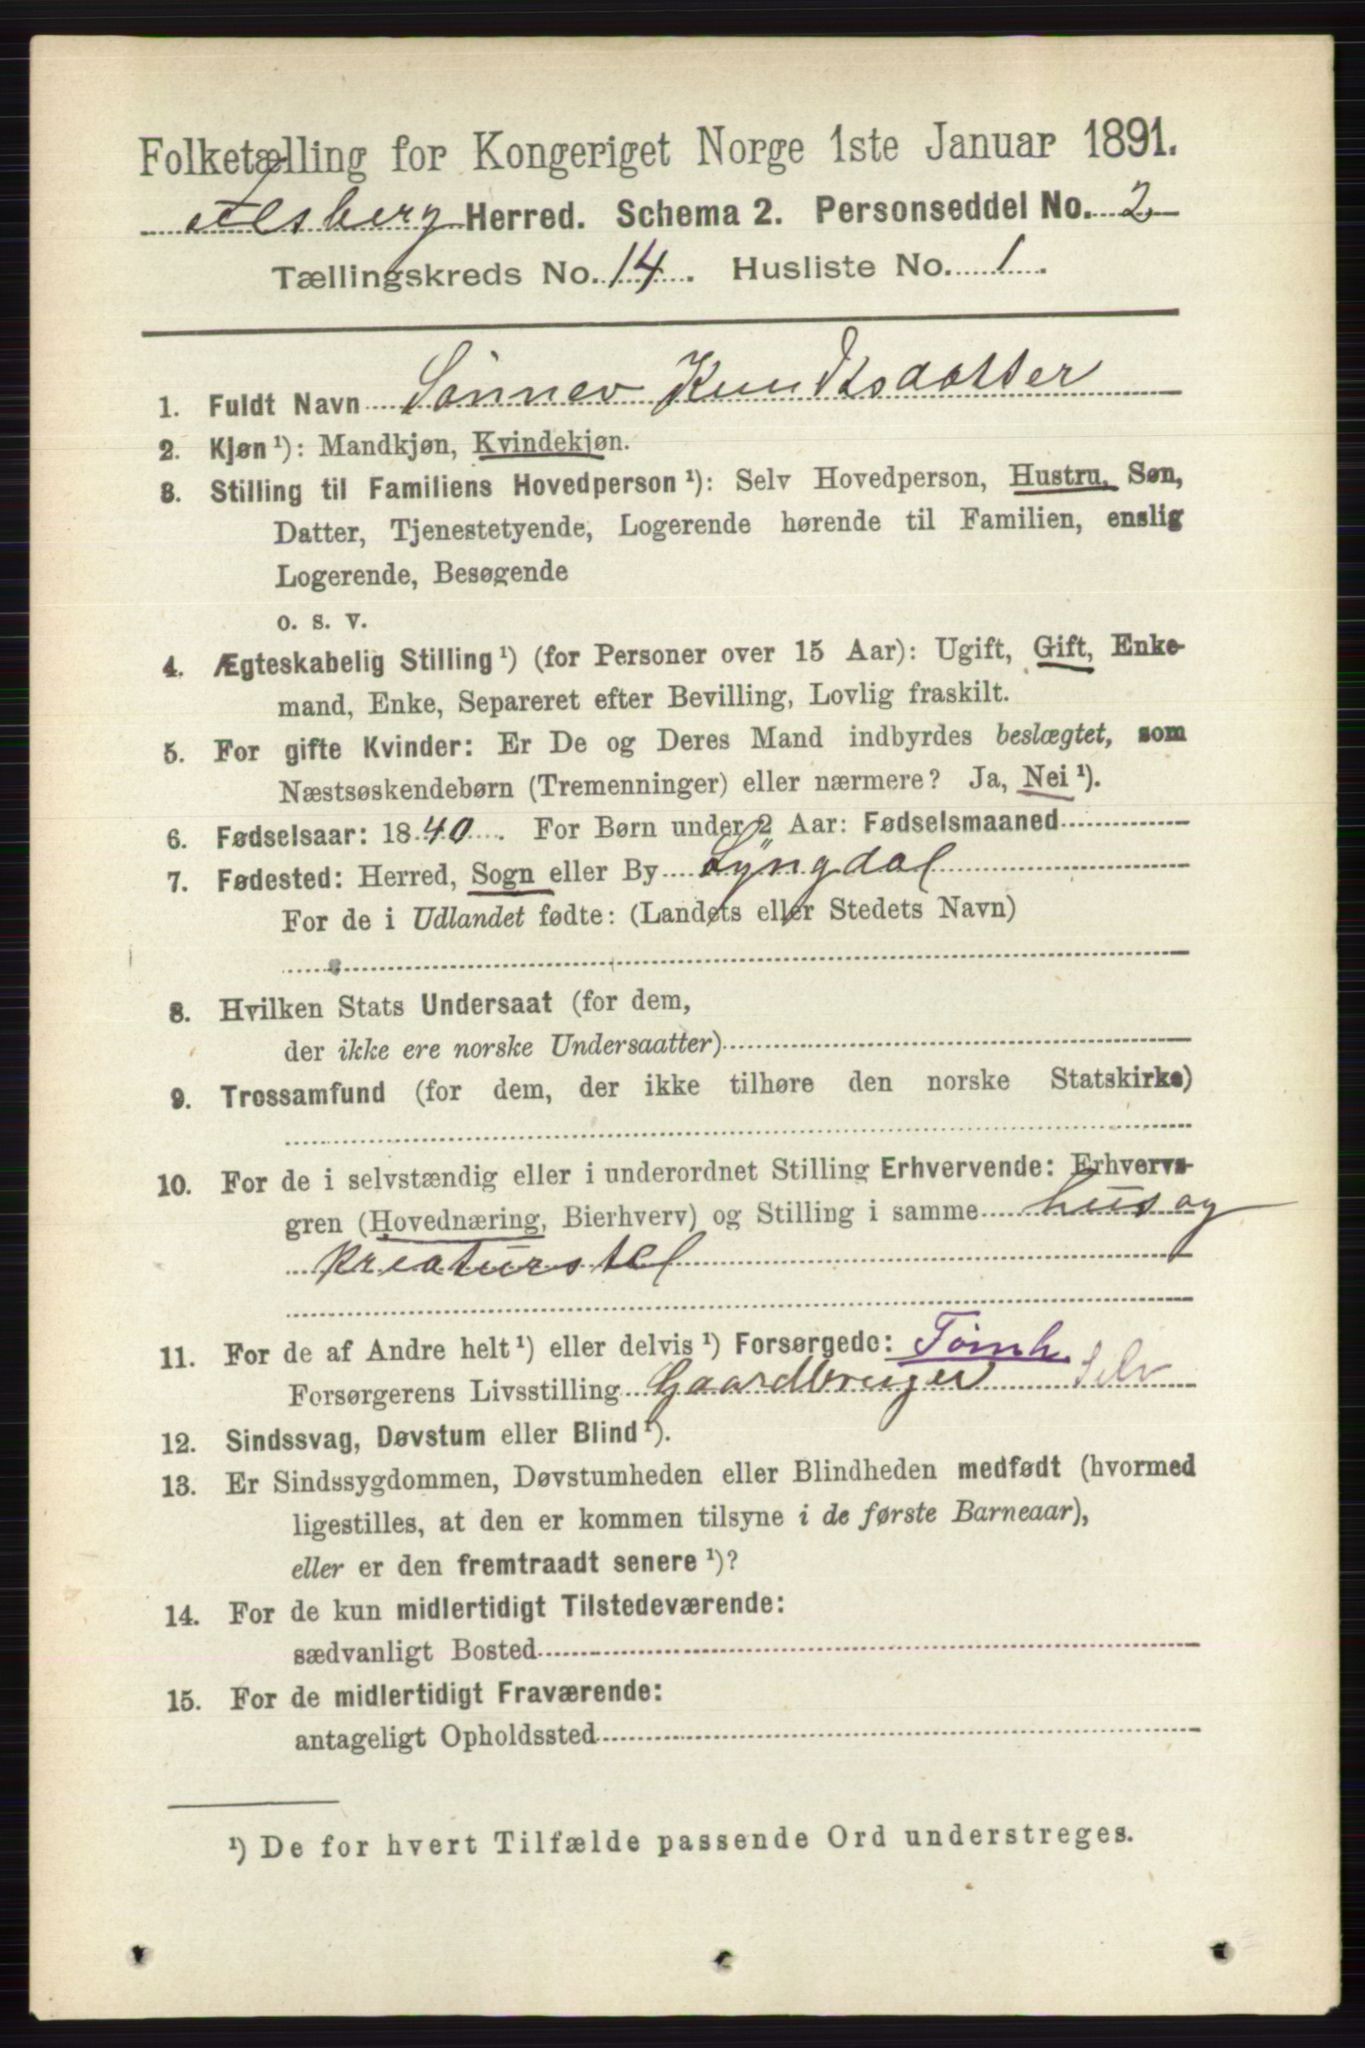 Folketælling for Kongeriget Norge 1ste Januar 1891.
Flesberg Herred. Schema 2. Personseddel No. 2
Tællingskreds No. 14. Husliste No. 1.
1. Fuldt Navn Sønnev Knudtsdatter
2. Kjøn¹): Mandkjøn, Kvindekjøn.
3. Stilling til Familiens Hovedperson¹): Selv Hovedperson, Hustru, Søn,
Datter, Tjenestetyende, Logerende hørende til Familien, enslig
Logerende, Besøgende
o. s. v.
4. Ægteskabelig Stilling¹) (for Personer over 15 Aar): Ugift, Gift, Enke-
mand, Enke, Separeret efter Bevilling, Lovlig fraskilt.
5. For gifte Kvinder: Er De og Deres Mand indbyrdes beslægtet, som
Næstsøskendebørn (Tremenninger) eller nærmere? Ja, Nei¹).
6. Fødselsaar: 1840. For Børn under 2 Aar: Fødselsmaaned
7. Fødested: Herred, Sogn eller By Lyngdal
For de i Udlandet fødte: (Landets eller Stedets Navn)
8. Hvilken Stats Undersaat (for dem,
der ikke ere norske Undersaatter)
9. Trossamfund (for dem, der ikke tilhøre den norske Statskirke)
10. For de i selvstændig eller i underordnet Stilling Erhvervende: Erhvervs-
gren (Hovednæring, Bierhverv) og Stilling i samme hus og
kreaturstel
11. For de af Andre helt¹) eller delvis¹) Forsørgede: Tømh
Forsørgerens Livsstilling Gaardbruger Selv
12. Sindssvag, Døvstum eller Blind¹).
13. Er Sindssygdommen, Døvstumheden eller Blindheden medfødt (hvormed
ligestilles, at den er kommen tilsyne i de første Barneaar),
eller er den fremtraadt senere¹)?
14. For de kun midlertidigt Tilstedeværende:
sædvanligt Bosted
15. For de midlertidigt Fraværende:
antageligt Opholdssted
¹) De for hvert Tilfælde passende Ord understreges.